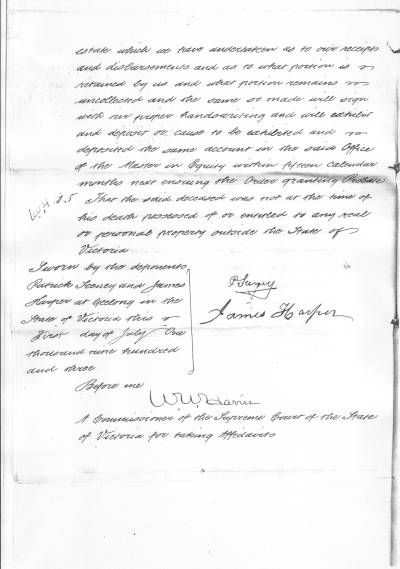 estate which we have undertaken as to our receipts
and disbursements and as to what portion is
retained by us and what portion remains
uncollected and the same so made will sign
with our proper handwriting and will exhibit
and deposit or cause to be exhibited and
deposited the same account in the said Office
of the Master in Equity within fifteen calendar
months next ensuing the Order granting Probate
5 That the said deceased was not at the time of
his death possessed of or entitled to any real
or personal property outside the State of
Victoria
Sworn by the deponents
Patrick and James
Harper at Geelong in the
State of Victoria this
First day of July One
thousand nine hundred
and three
James Harper
Before me
Davis
A Commissioner of the Supreme Court of the State
of Victoria for taking Affidavits